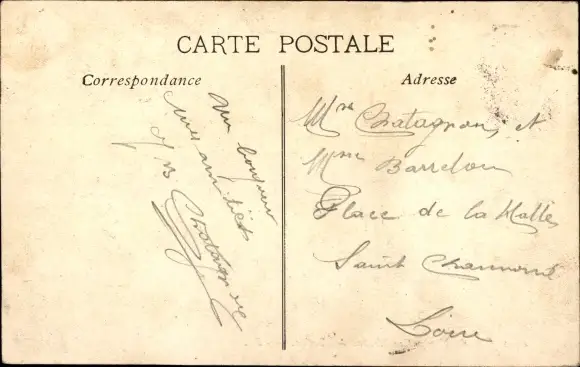 CARTE POSTALE
Correspondance
Adresse
un bonjour
mes amitiés
J B Chatagnon
Mme Chatagnon, et
Mme Barrelon
Place de la Halle
Saint Chamond
Loire